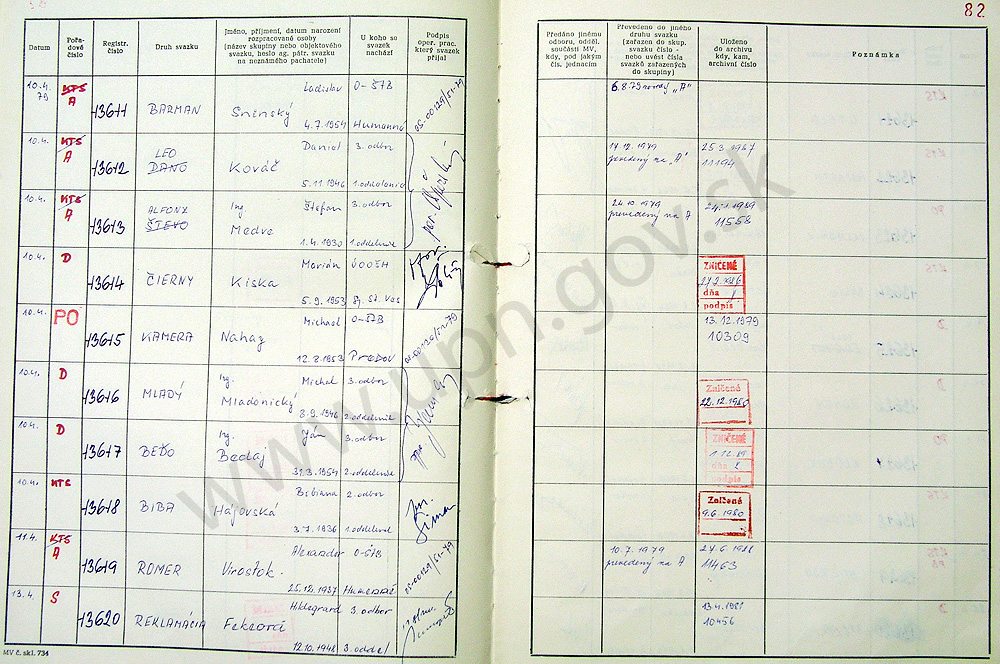 82
Datum
Pořa-
dové
číslo
Registr.
číslo
Druh svazku
Jméno, příjmení, datum narození
rozpracované osoby
(název skupiny nebo objektového
svazku, heslo ag. pátr. svazku
na neznámého pachatele)
U koho se
svazek
nachází
Podpis
oper. prac.
který svazek
přijal
Předáno jinému
odboru, odděl.
součásti MV,
kdy, pod jakým
čís. jednacím
Převedeno do jiného
druhu svazku
(zařazen do skup.
svazku číslo -
nebo uvést čísla
svazků zařazených
do skupiny)
Uloženo
do archivu
kdy, kam,
archivní číslo
Poznámka
10.4.
79
KTS
A
13611
BARMAN
Ladislav
Sninský
4.7.1954
O-ŠTB
Humenné
6.8.79 "A"
10.4.
KTS
A
13612
LEO
DANO
Daniel
Kováč
5.11.1946
3. odbor
1. oddelenie
17.12.1979
prevedený na "A"
25.3.1987
11194
10.4.
KTS
A
13613
ALFONZ
ŠTEVO
Ing. Štefan
Medve
1.4.1930
3. odbor
1. oddelenie
24.10.1979
prevedený na A
11558
10.4.
D
13614
ČIERNY
Marián
Kiska
5.9.1953
ZNIČENÉ
dňa
podpis
10.4.
PO
13615
KAMERA
Michael
Nahaz
12.8.1953
O-ŠTB
Prešov
13.12.1979
10309
10.4.
D
13616
MLADÝ
Ing. Michal
Mladonický
8.9.1946
3. odbor
2. oddelenie
Zničené
22.12.1980
10.4.
D
13617
BEŤO
Ing. Ján
Bedaj
31.3.1954
3. odbor
2. oddelenie
ZNIČENÉ
dňa
podpis
10.4.
KTS
13618
BIBA
Bibiana
Hájovská
3.7.1936
2. odbor
1. oddelenie
Zničené
9.6.1980
11.4.
KTS
A
13619
ROMER
Alexander
Virostok
25.12.1937
O-ŠTB
Humenné
10.7.1979
prevedený na A
11463
13.4.
S
13620
REKLAMÁCIA
Hildegrard
Feketová
12.10.1948
3. odbor
3. oddel
13.4.1981
10456
MV č. skl. 734
www.upn.gov.sk